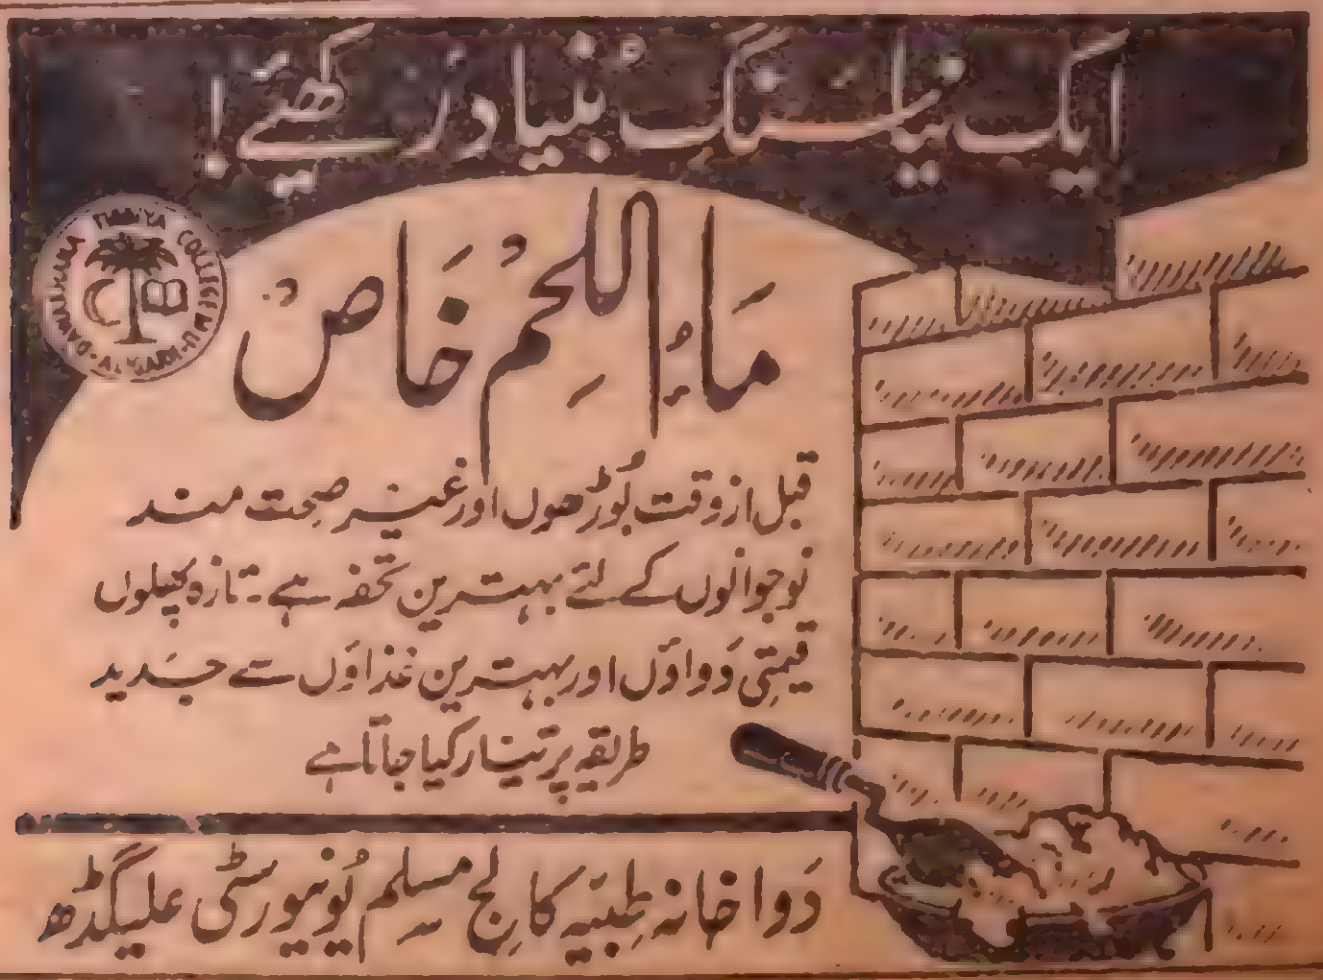 ایک نیا سنگ بُنیاد رکھئے!
DAWAKHANA TIBBIYA COLLEGE M.U. ALIGARH
مَاءُ اللحِم خَاصْ
قبل از وقت بُوڑھوں اور غیر صحت مند
نوجوانوں کے لئے بہترین تحفہ ہے۔ تازہ پھلوں
قیمتی دَواؤں اور بہترین غذاؤں سے جدید
طریقہ پر تیار کیا جاتا ہے
دَوا خانہ طِبیّہ کالِج مسلِم یُونیورسٹی علیگڈھ